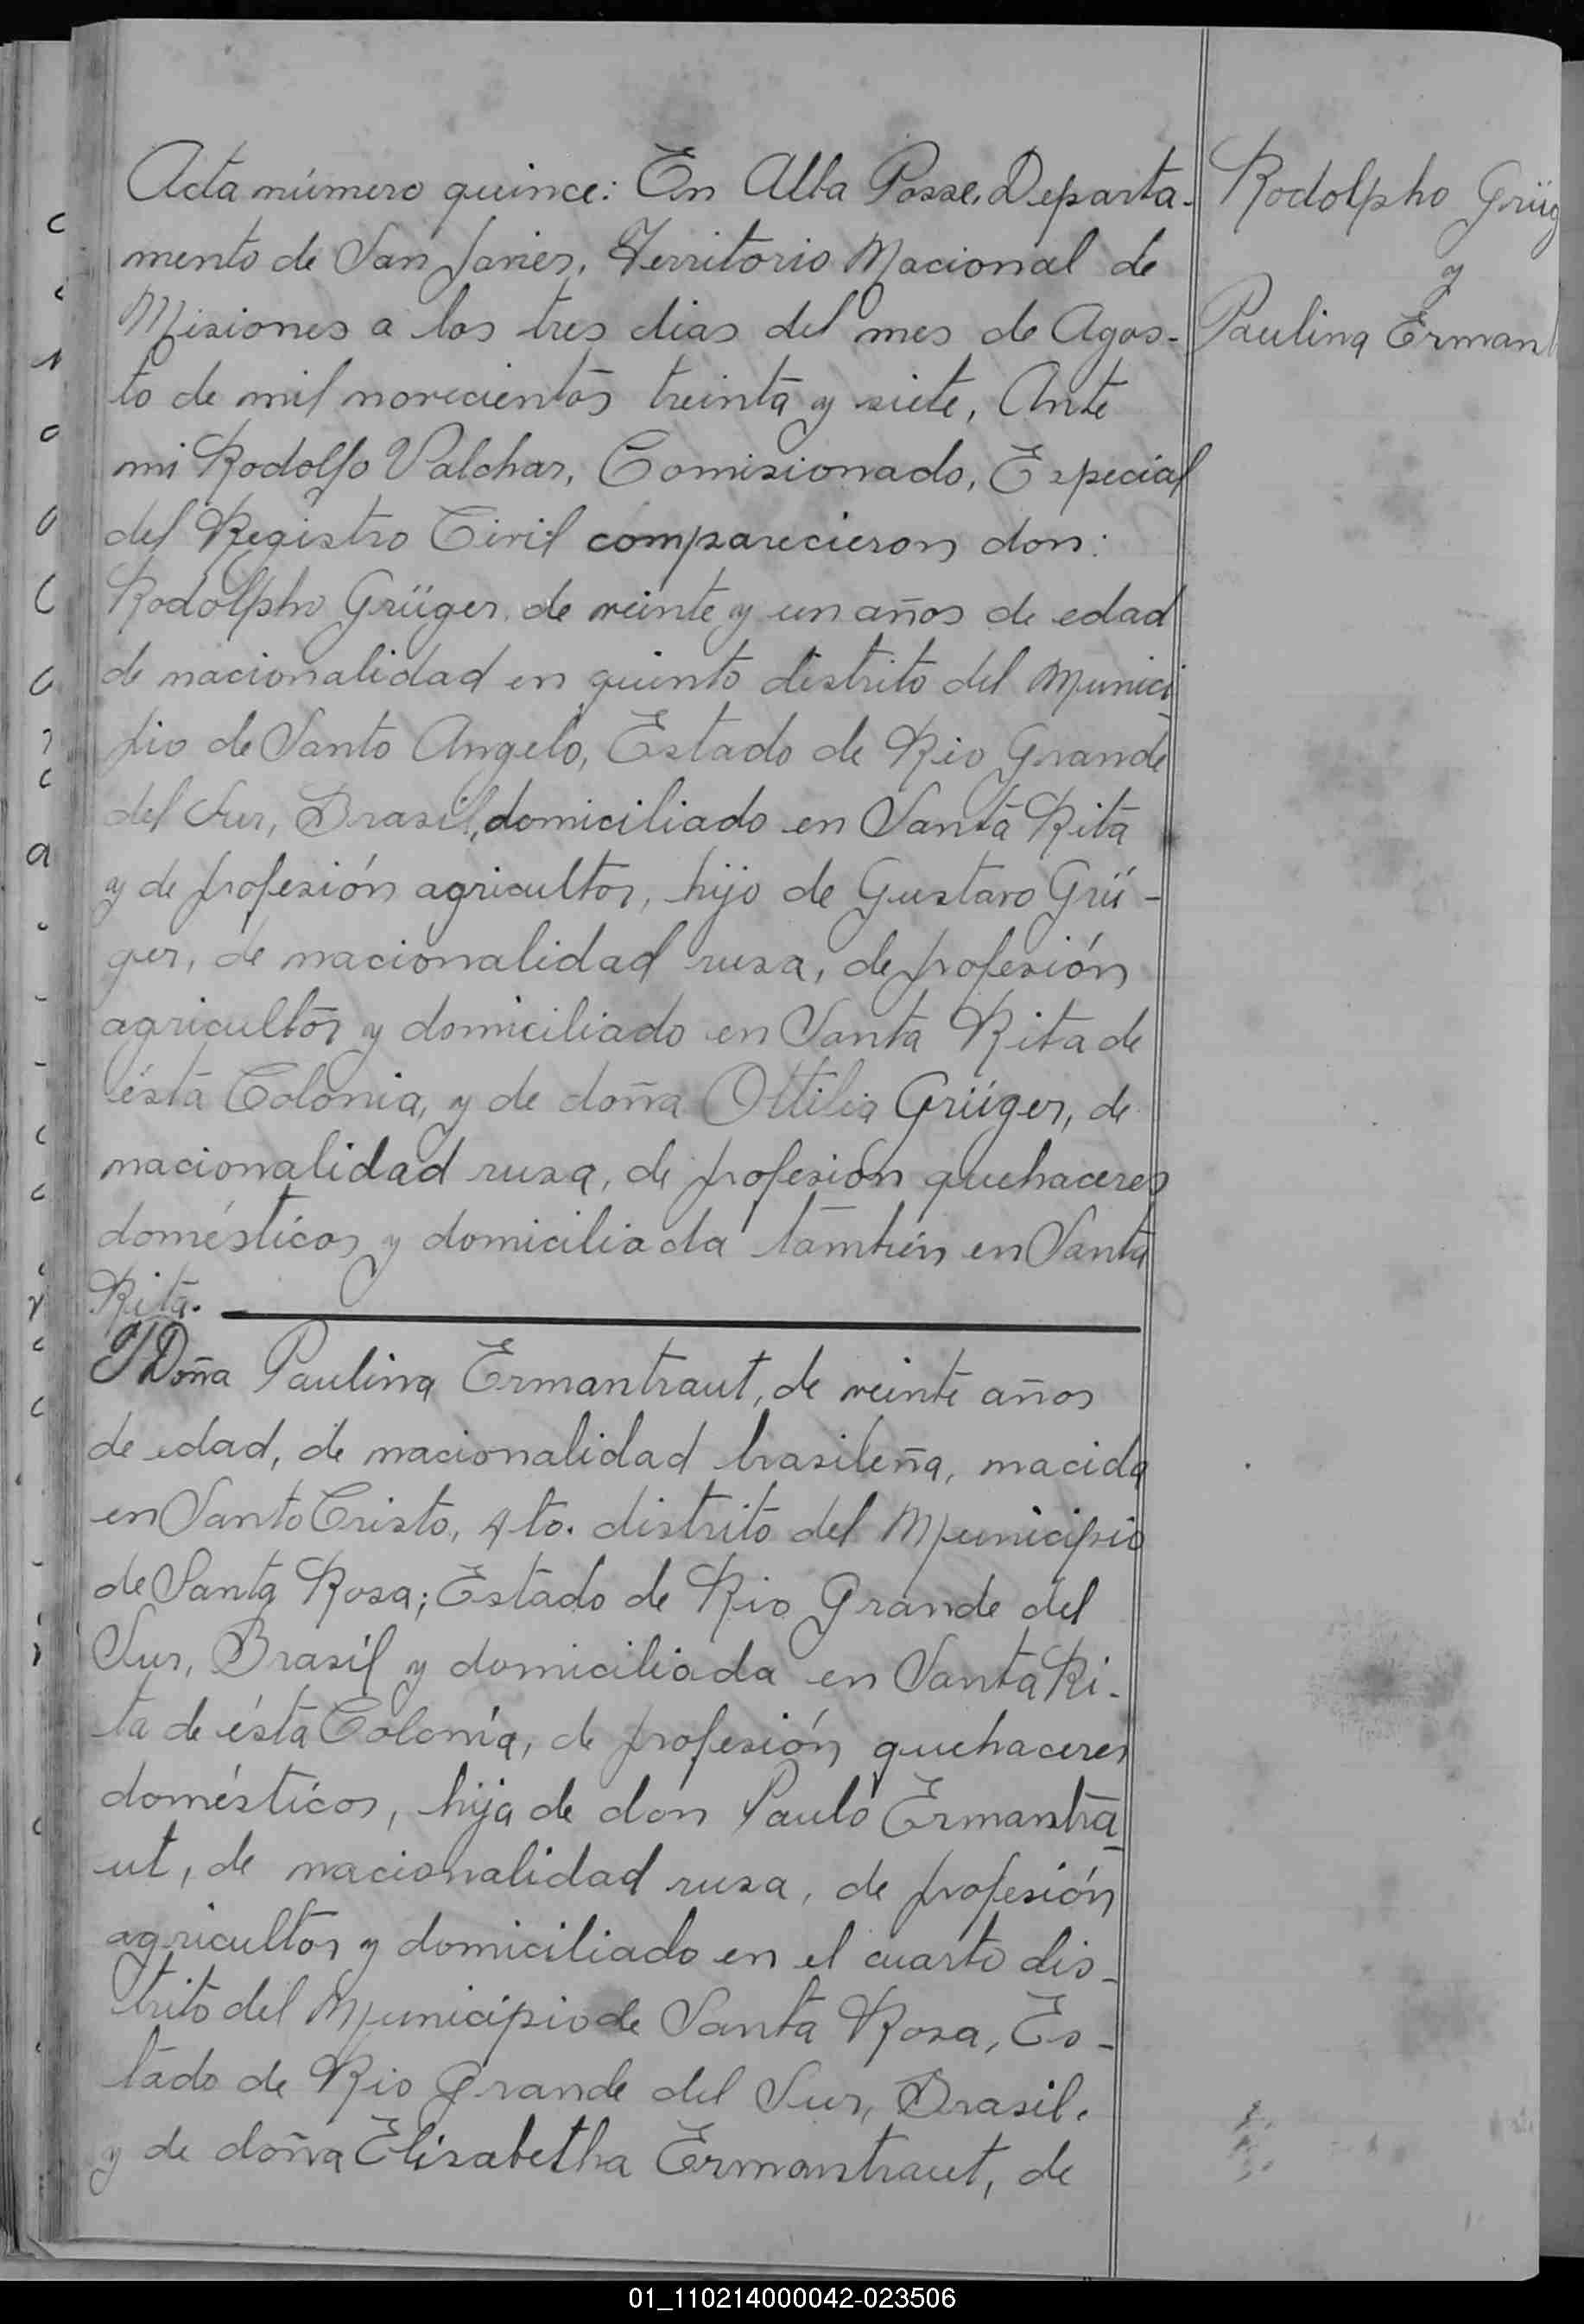 Acta número quince: En Alba Posse, Departa-
mento de San Javier, Territorio Nacional de
Misiones a los tres dias del mes de Agos-
to de mil novecientos treinta y siete, Ante
mi Rodolfo Valchar, Comisionado, Especial
del Registro Civil comparecieron don:
Rodolpho Grüger, de veinte y un años de edad
de nacionalidad en quinto distrito del Munici
pio de Santo Angelo, Estado de Rio Grande
del Sur, Brasil, domiciliado en Santa Rita
y de profesión agricultor, hijo de Gustavo Grü-
ger, de nacionalidad rusa, de profesión
agricultor y domiciliado en Santa Rita de
ésta Colonia, y de doña Ottilia Grüger, de
nacionalidad rusa, de profesión quehaceres
domésticos y domiciliada también en Santa
Rita.
Y Doña Paulina Ermantraut, de veinte años
de edad, de nacionalidad brasileña, nacida
en Santo Cristo, 4to. distrito del Municipio
de Santa Rosa; Estado de Rio Grande del
Sur, Brasil y domiciliada en Santa Ri-
ta de ésta Colonia, de profesión quehaceres
domésticos, hija de don Paulo Ermantra-
ut, de nacionalidad rusa, de profesión
agricultor y domiciliado en el cuarto dis-
trito del Municipio de Santa Rosa, Es-
tado de Rio Grande del Sur, Brasil.
y de doña Elisabetha Ermantraut, de
Rodolpho Grüg
y
Paulina Erman
01_110214000042-023506